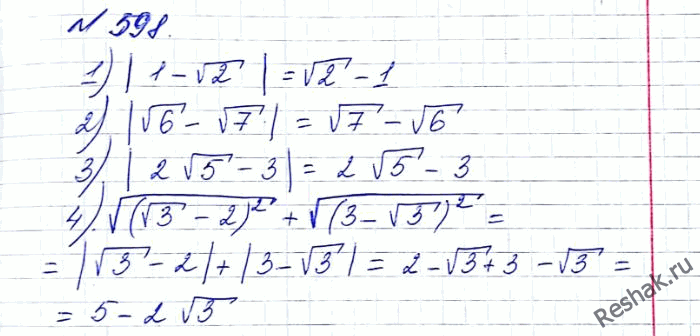 № 598.
1) | 1 - √2 | = √2 - 1
2) |√6 - √7| = √7 - √6
3) | 2 √5 - 3 | = 2 √5 - 3
4) √(√3 - 2)² + √(3 - √3)² =
= |√3 - 2| + |3 - √3| = 2 - √3 + 3 - √3 =
= 5 - 2 √3
Reshak.ru